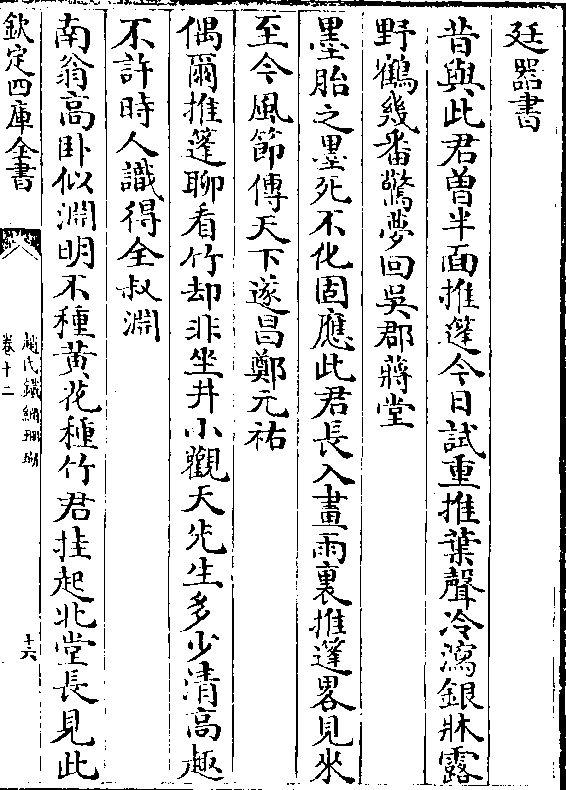 廷器書
昔與此君曽半面推篷今日試重推葉聲冷瀉銀牀露
野鶴幾番驚夢回吳郡蔣堂
墨胎之墨死不化固應此君長入畫雨裏推篷畧見來
至今風節傳天下遂昌鄭元祐
偶爾推篷聊看竹却非坐井小觀天先生多少清高趣
不許時人識得全叔淵
南翁高卧似淵明不種黄花種竹君挂起北堂長見此
欽定四庫全書
趙氏鐵網珊瑚
卷十二
十六